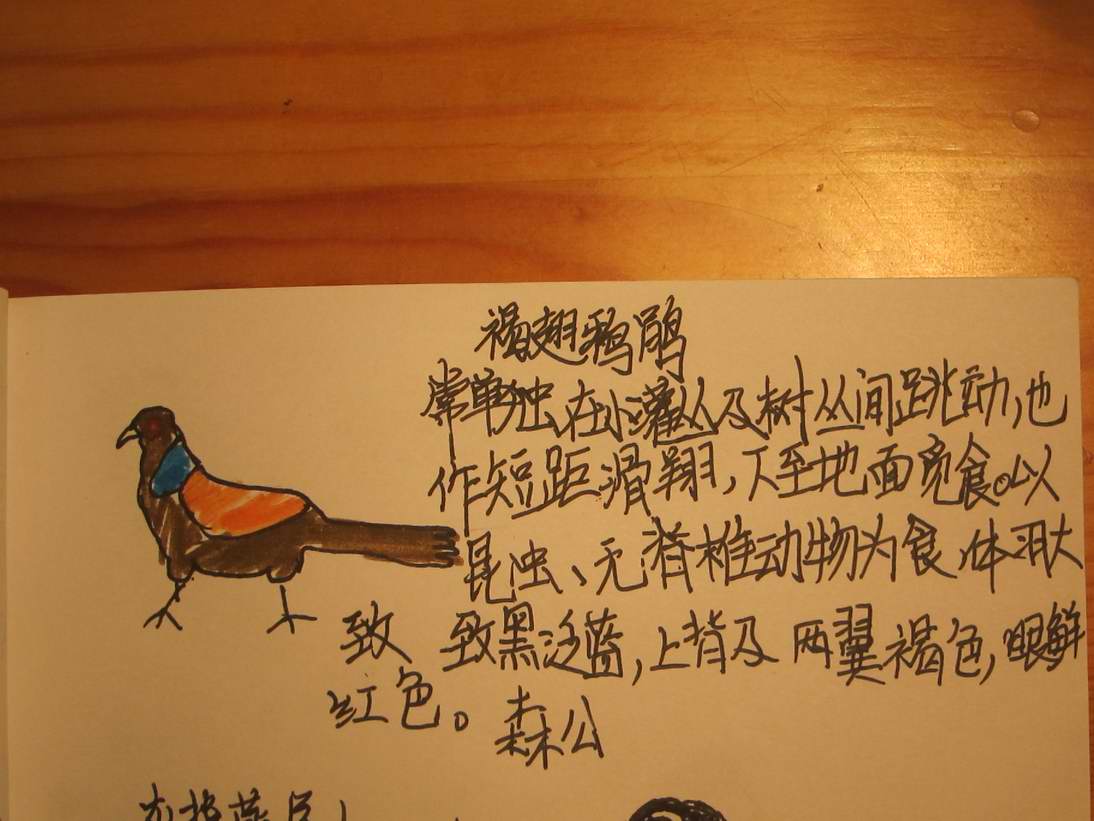 褐翅鸦鹃
常单独在小灌丛及树丛间跳动,也
作短距滑翔,下至地面觅食。以
昆虫、无脊椎动物为食,体羽大
致 致黑泛蓝,上背及两翼褐色,眼鲜
红色。 森公